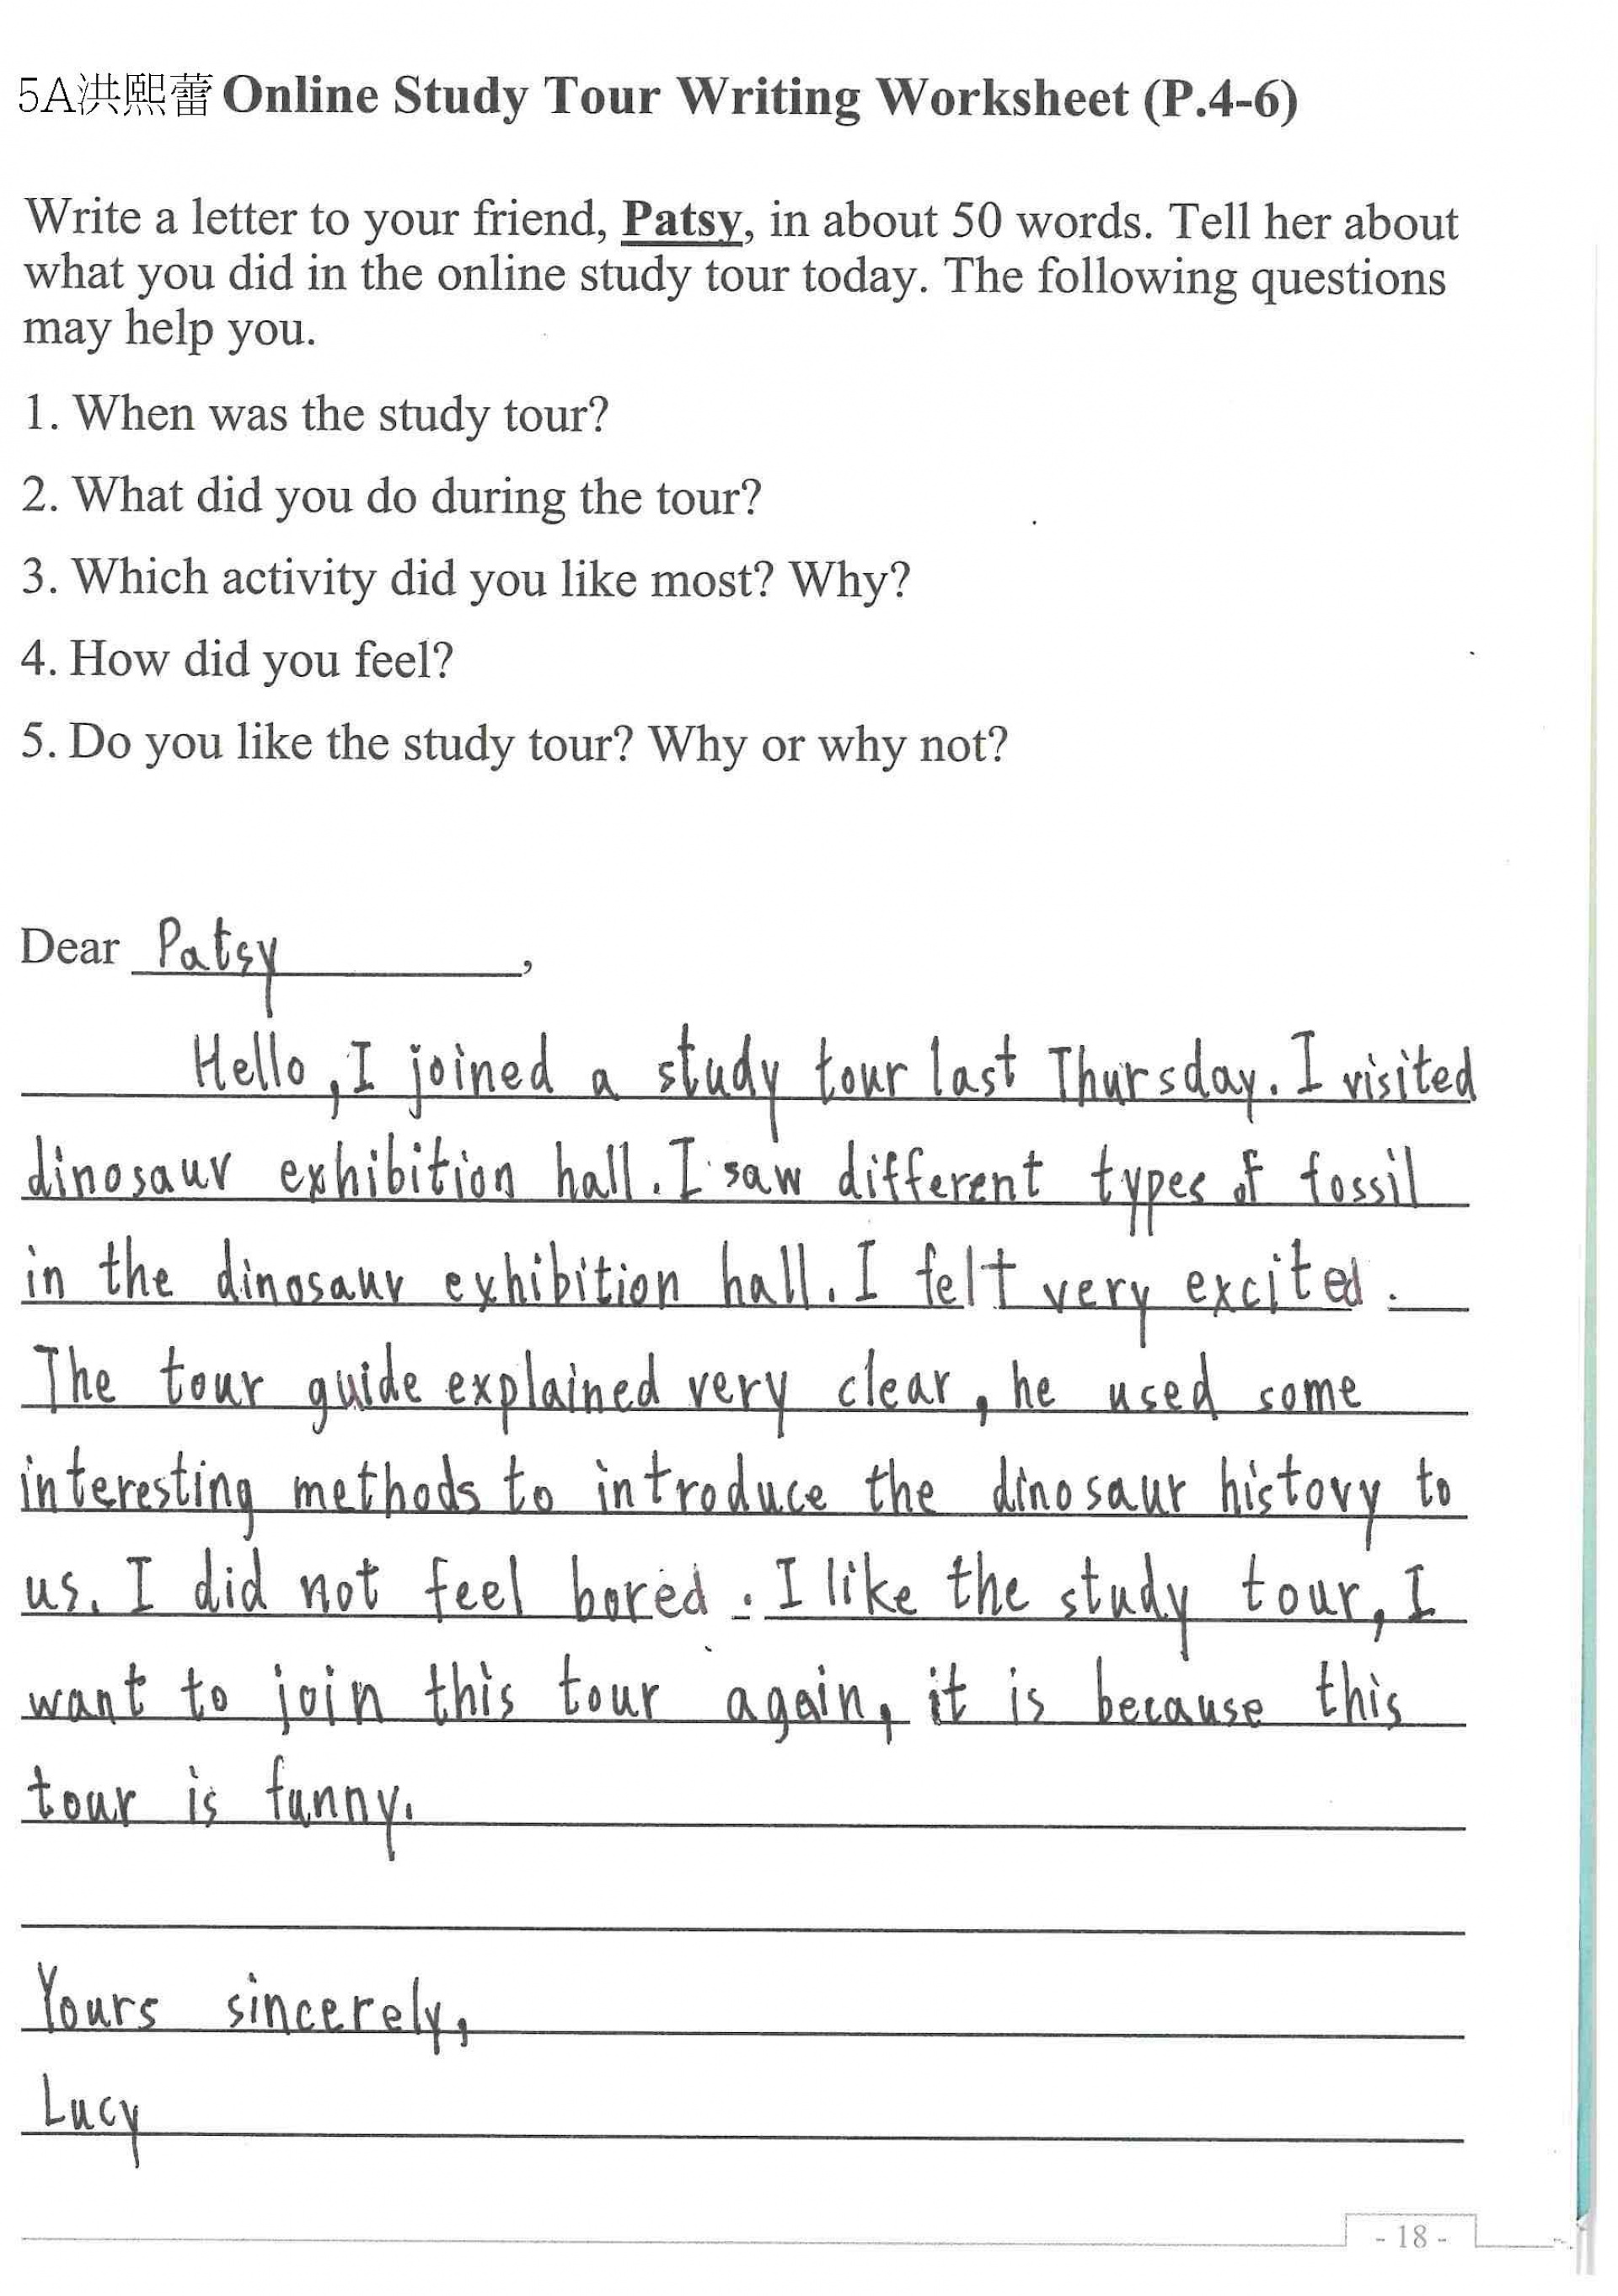 5A洪熙蕾 Online Study Tour Writing Worksheet (P.4-6)
Write a letter to your friend, Patsy, in about 50 words. Tell her about
what you did in the online study tour today. The following questions
may help you.
1. When was the study tour?
2. What did you do during the tour?
3. Which activity did you like most? Why?
4. How did you feel?
5. Do you like the study tour? Why or why not?
Dear Patsy,
Hello, I joined a study tour last Thursday. I visited
dinosaur exhibition hall. I saw different types of fossil
in the dinosaur exhibition hall. I felt very excited.
The tour guide explained very clear, he used some
interesting methods to introduce the dinosaur history to
us. I did not feel bored. I like the study tour, I
want to join this tour again, it is because this
tour is funny.
Yours sincerely,
Lucy
- 18 -